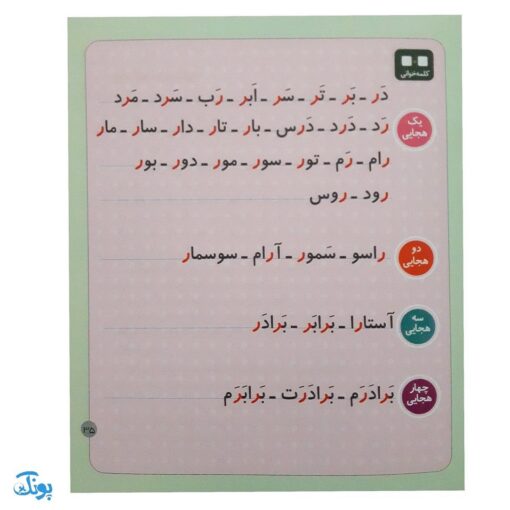 کلمه‌خوانی
دَر ـ بَر ـ تَر ـ سَر ـ اَبر ـ رَب ـ سَرد ـ مَرد
یک هجایی
رَد ـ دَرد ـ دَرس ـ بار ـ تار ـ دار ـ سار ـ مار
رام ـ رَم ـ تور ـ سور ـ مور ـ دور ـ بور
رود ـ روس
دو هجایی
راسو ـ سَمور ـ آرام ـ سوسمار
سه هجایی
آستارا ـ بَرابَر ـ بَرادَر
چهار هجایی
بَرادَرَم ـ بَرادَرَت ـ بَرابَرَم
۳۵
پونک